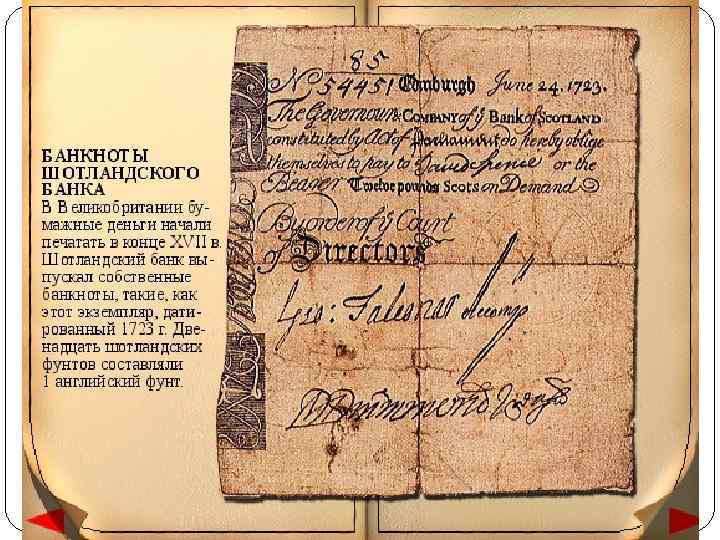 БАНКНОТЫ
ШОТЛАНДСКОГО
БАНКА
В Великобритании бу-
мажные деньги начали
печатать в конце XVII в.
Шотландский банк вы-
пускал собственные
банкноты, такие, как
этот экземпляр, дати-
рованный 1723 г. Две-
надцать шотландских
фунтов составляли
1 английский фунт.
85
No 54451 Edinburgh June 24, 1723.
The Governour & COMPANY of ye Bank of SCOTLAND
constituted by Act of Parliament do hereby oblige
themselves to pay to David Spence or the
Bearer Twelve pounds Scots on Demand
By order of ye Court
of Directors